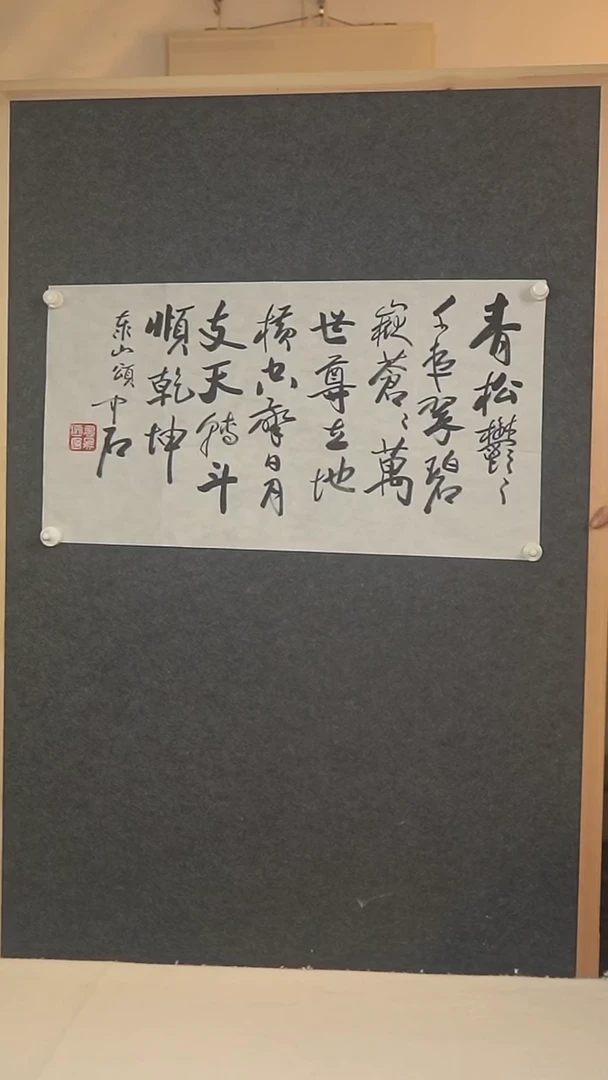 青松鬱〻
千重翠碧
嶽蒼〻萬
世尊立地
橫空齊日月
支天轉斗
順乾坤
泰山頌 中石